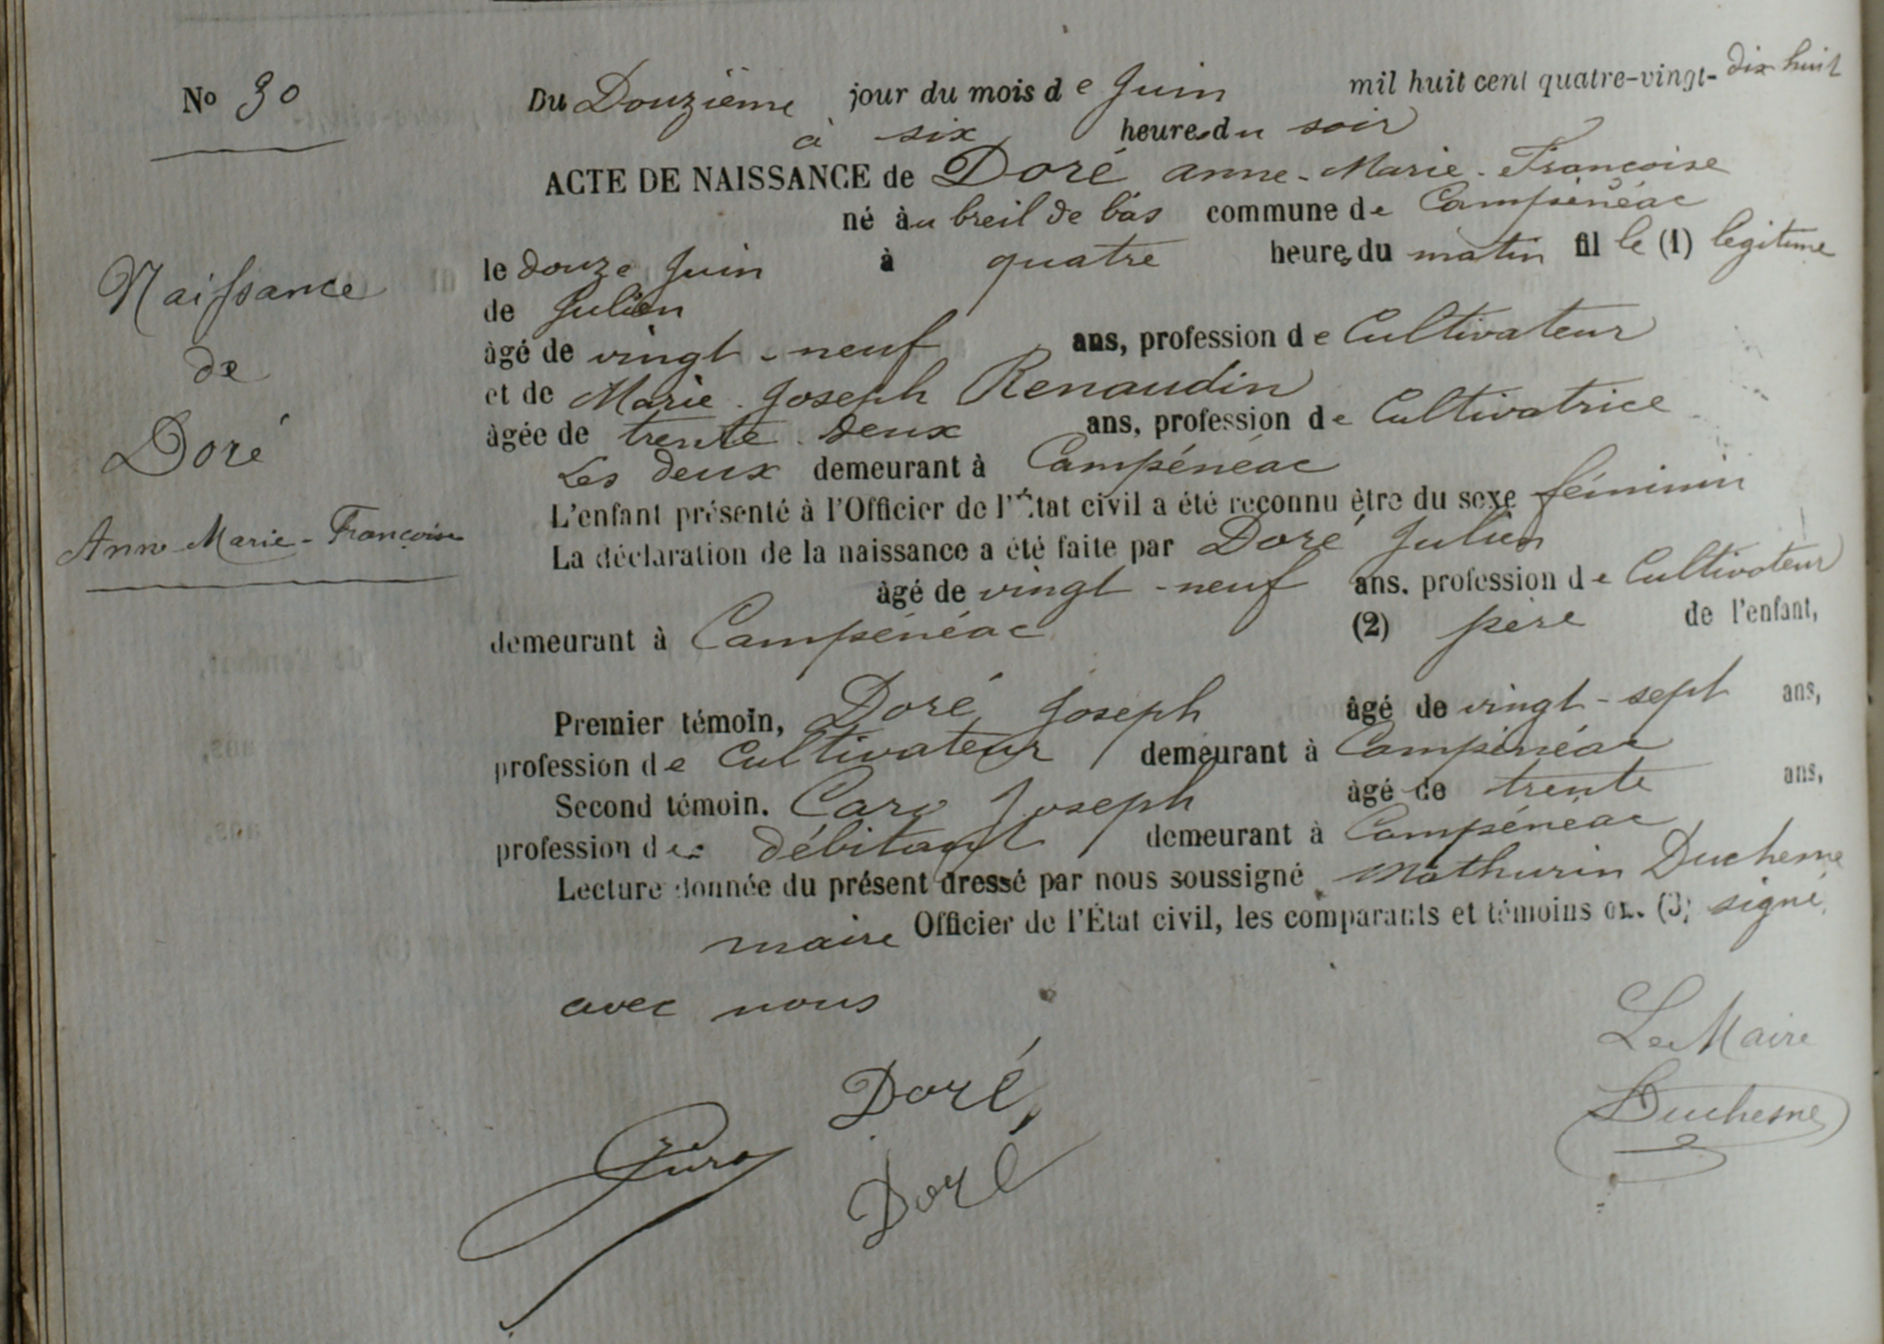 No 30
Du Douzième jour du mois de Juin mil huit cent quatre-vingt-dix huit
à six heures du soir
ACTE DE NAISSANCE de Doré Anne-Marie-Françoise
né au breil de bas commune de Campénéac
le douze Juin à quatre heures du matin fille (1) legitime
de Julien
âgé de vingt-neuf ans, profession de Cultivateur
et de Marie-Joseph Renaudin
âgée de trente-deux ans, profession de Cultivatrice
Les deux demeurant à Campénéac
L'enfant présenté à l'Officier de l'État civil a été reconnu être du sexe féminin
La déclaration de la naissance a été faite par Doré Julien
âgé de vingt-neuf ans, profession de Cultivateur
demeurant à Campénéac (2) père de l'enfant,
Premier témoin, Doré Joseph âgé de vingt-sept ans,
profession de Cultivateur demeurant à Campénéac
Second témoin. Caro Joseph âgé de trente ans,
profession de débitant demeurant à Campénéac
Lecture donnée du présent dressé par nous soussigné Mathurin Duchesne
maire Officier de l'État civil, les comparants et témoins on. (3) signé
avec nous
Naissance
de
Doré
Anne-Marie-Françoise
Doré
Doré
Le Maire
Duchesne